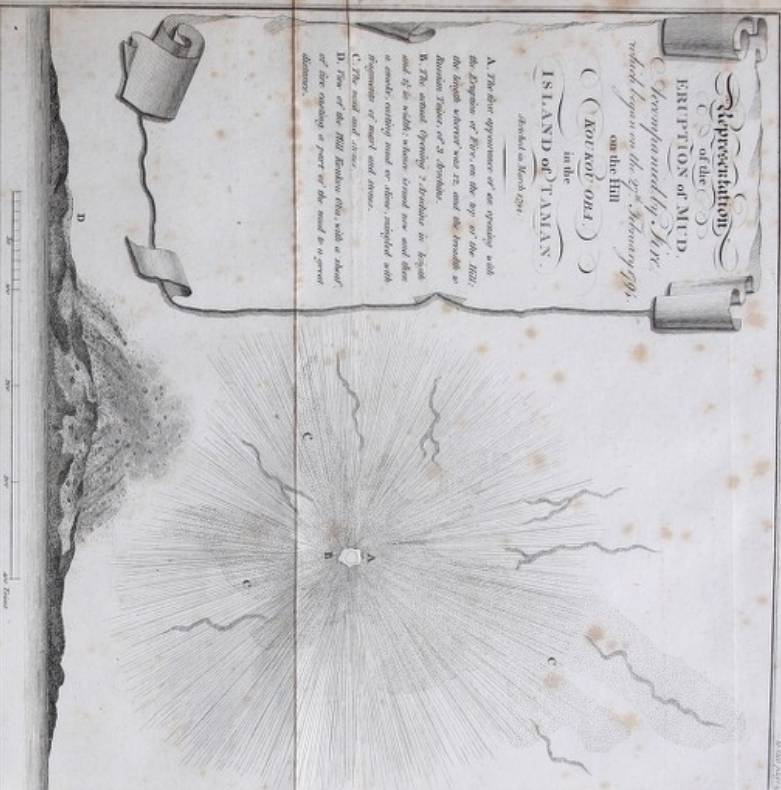 Representation
of the
ERUPTION of MUD,
Accompanied by Fire.
which began on the 27th February 1794.
on the Hill
KOUKOU OBA,
in the
ISLAND of TAMAN.
Sketched in March 1794.
A. The first appearance of an opening with
the Eruption of Fire, on the top of the Hill;
the length whereof was 12, and the breadth
Russian Toises, of 3 Arschins.
B. The actual Opening, Arschins in length
and 1½ in width; whence issued now and then
a smoke, casting mud or slime, mingled with
fragments of marl and stones.
C. The mud and stones.
D. View of the Hill Koukou Oba, with a sheaf
of fire casting a part of the mud to a great
distance.
A
B
C
C
C
D
50
100
200
300
400 Toises